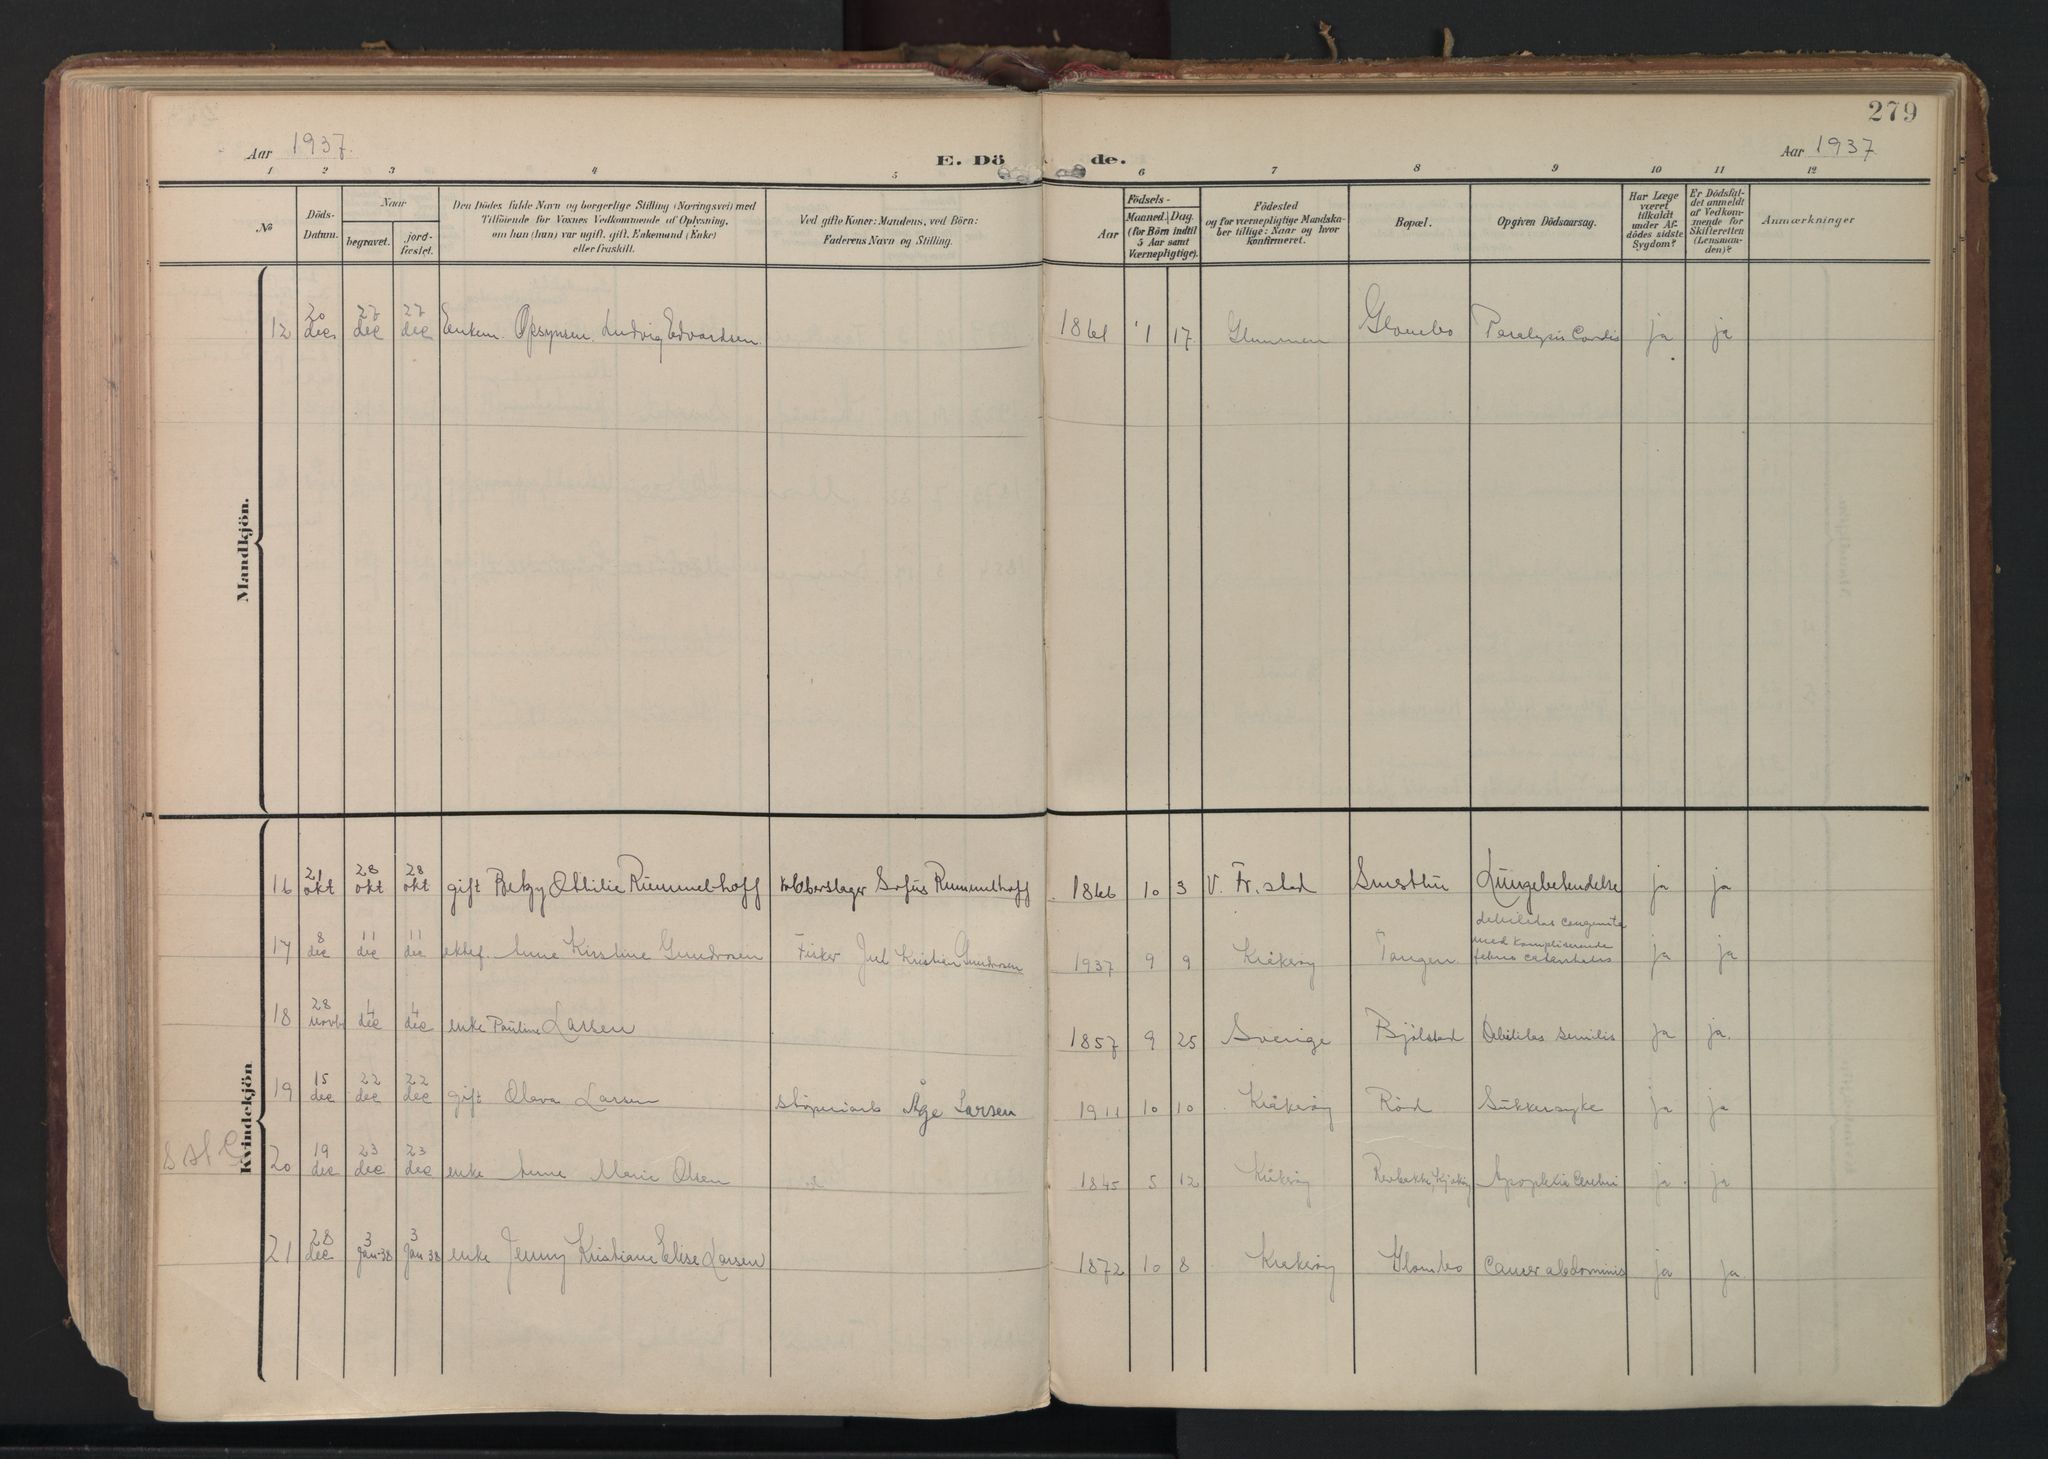 279
Aar 1937.
E. Dö de.
Aar 1937
1 2 3 4 5 6 7 8 9 10 11 12
No
Döds-Datum.
Naar
begravet.
jord-fæstet.
Den Dödes fulde Navn og borgerlige Stilling (Næringsvei) med
Tilföiende for Voxnes Vedkommende af Oplysning,
om han (hun) var ugift, gift, Enkemand (Enke)
eller fraskilt.
Ved gifte Koner: Mandens, ved Börn:
Faderens Navn og Stilling.
Födsels-
Aar
Maaned. Dag.
(for Börn indtil
5 Aar samt
Værnepligtige).
Födested
og for værnepligtige Mandska-
ber tillige: Naar og hvor
konfirmeret.
Bopæl.
Opgiven Dödsaarsag.
Har Læge
været
tilkaldt
under Af-
dödes sidste
Sygdom?
Er Dödsfal-
det anmeldt
af Vedkom-
mende for
Skifteretten
(Lensman-
den)?
Anmærkninger
Mandkjön.
12 20 dec 27 dec 27 dec Enkem. Opsynsm. Ludvig Edvardsen 1861 1 17 Glemmen Glombo Paralysis Cordis ja ja
Kvindekjön
16 21 okt 28 okt 28 okt gift Betzy Othilie Rummelhoff Kobberslager Sofus Rummelhoff 1866 10 3 V. Fr.stad Smertu Lungebetendelse ja ja
17 8 dec 11 dec 11 dec ektef. Anne Kirstine Gundersen Fisker Jul Kristian Gundersen 1937 9 9 Kråkerøy Tangen debilitas congenita
med kompliserende
febris catarrhalis ja ja
18 28 novb 4 dec 4 dec enke Pauline Larsen 1857 9 25 Sverige Bjølstad Debilitas senilis ja ja.
19 15 dec 22 dec 22 dec gift Olava Larsen støperiarb Åge Larsen 1911 10 10 Kråkerøy Rød Sukkersyke ja ja
20 19 dec 23 dec 23 dec enke Anne Marie Olsen 1845 5 12 Kråkerøy Apoplexia Cerebri ja ja
21 28 dec 3 jan-38 3 jan 38 enke Jenny Kristiane Elise Larsen 1872 10 8 Kråkerøy Glombo Cancer abdominis ja ja